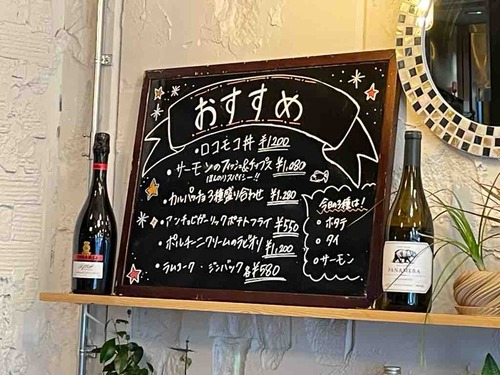 おすすめ
・ロコモコ丼 ¥1,200
・サーモンのフィッシュ&チップス ¥1,080
ほんのりスパイシー!!
・カルパッチョ3種盛り合わせ ¥1,280
・アンチョビガーリックポテトフライ ¥550
・ポルチーニクリームのラビオリ ¥1,200
・ラムコーク ・ジンバック 各¥580
今日の3種は!
○ホタテ
○タイ
○サーモン
PANAMERA